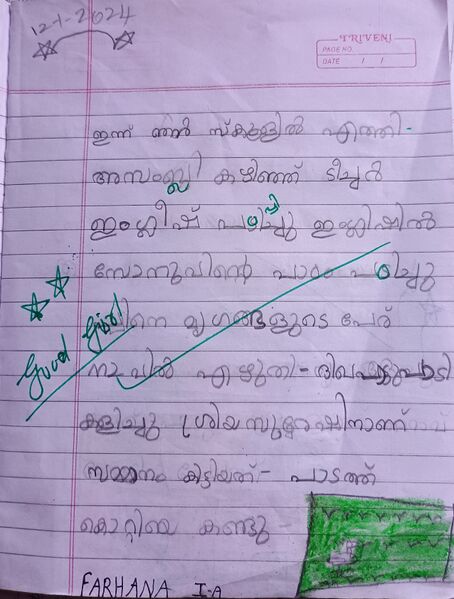 12-1-2024
TRIVENI
PAGE NO.
DATE / /
ഇന്ന് ഞാൻ സ്കൂളിൽ എത്തി-
അസംബ്ലി കഴിഞ്ഞ് ടീച്ചർ
ഇംഗ്ലീഷ് പഠിപ്പിച്ചു ഇംഗ്ലിഷിൽ
സോനുവിന്റെ പാഠം പഠിച്ചു
പിന്നെ മൃഗങ്ങളുടെ പേര്
Good Girl
എഴുതി-
കളിച്ചു ശ്രിയ
സമ്മാനം കിട്ടിയത്- പാടത്ത്
കൊറ്റിയെ കണ്ടു-
FARHANA I-A